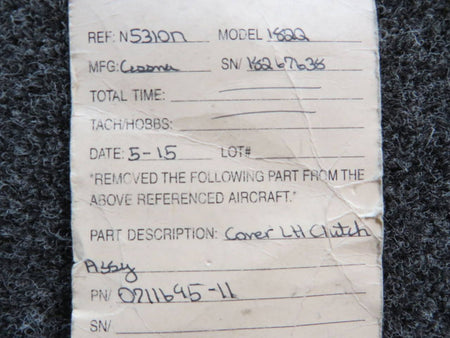 REF: N5310N MODEL 182Q
MFG: Cessna SN/ 18267638
TOTAL TIME:
TACH/HOBBS:
DATE: 5-15 LOT#
"REMOVED THE FOLLOWING PART FROM THE
ABOVE REFERENCED AIRCRAFT."
PART DESCRIPTION: Cover LH Clutch
Assy
PN/ 0711645-11
SN/